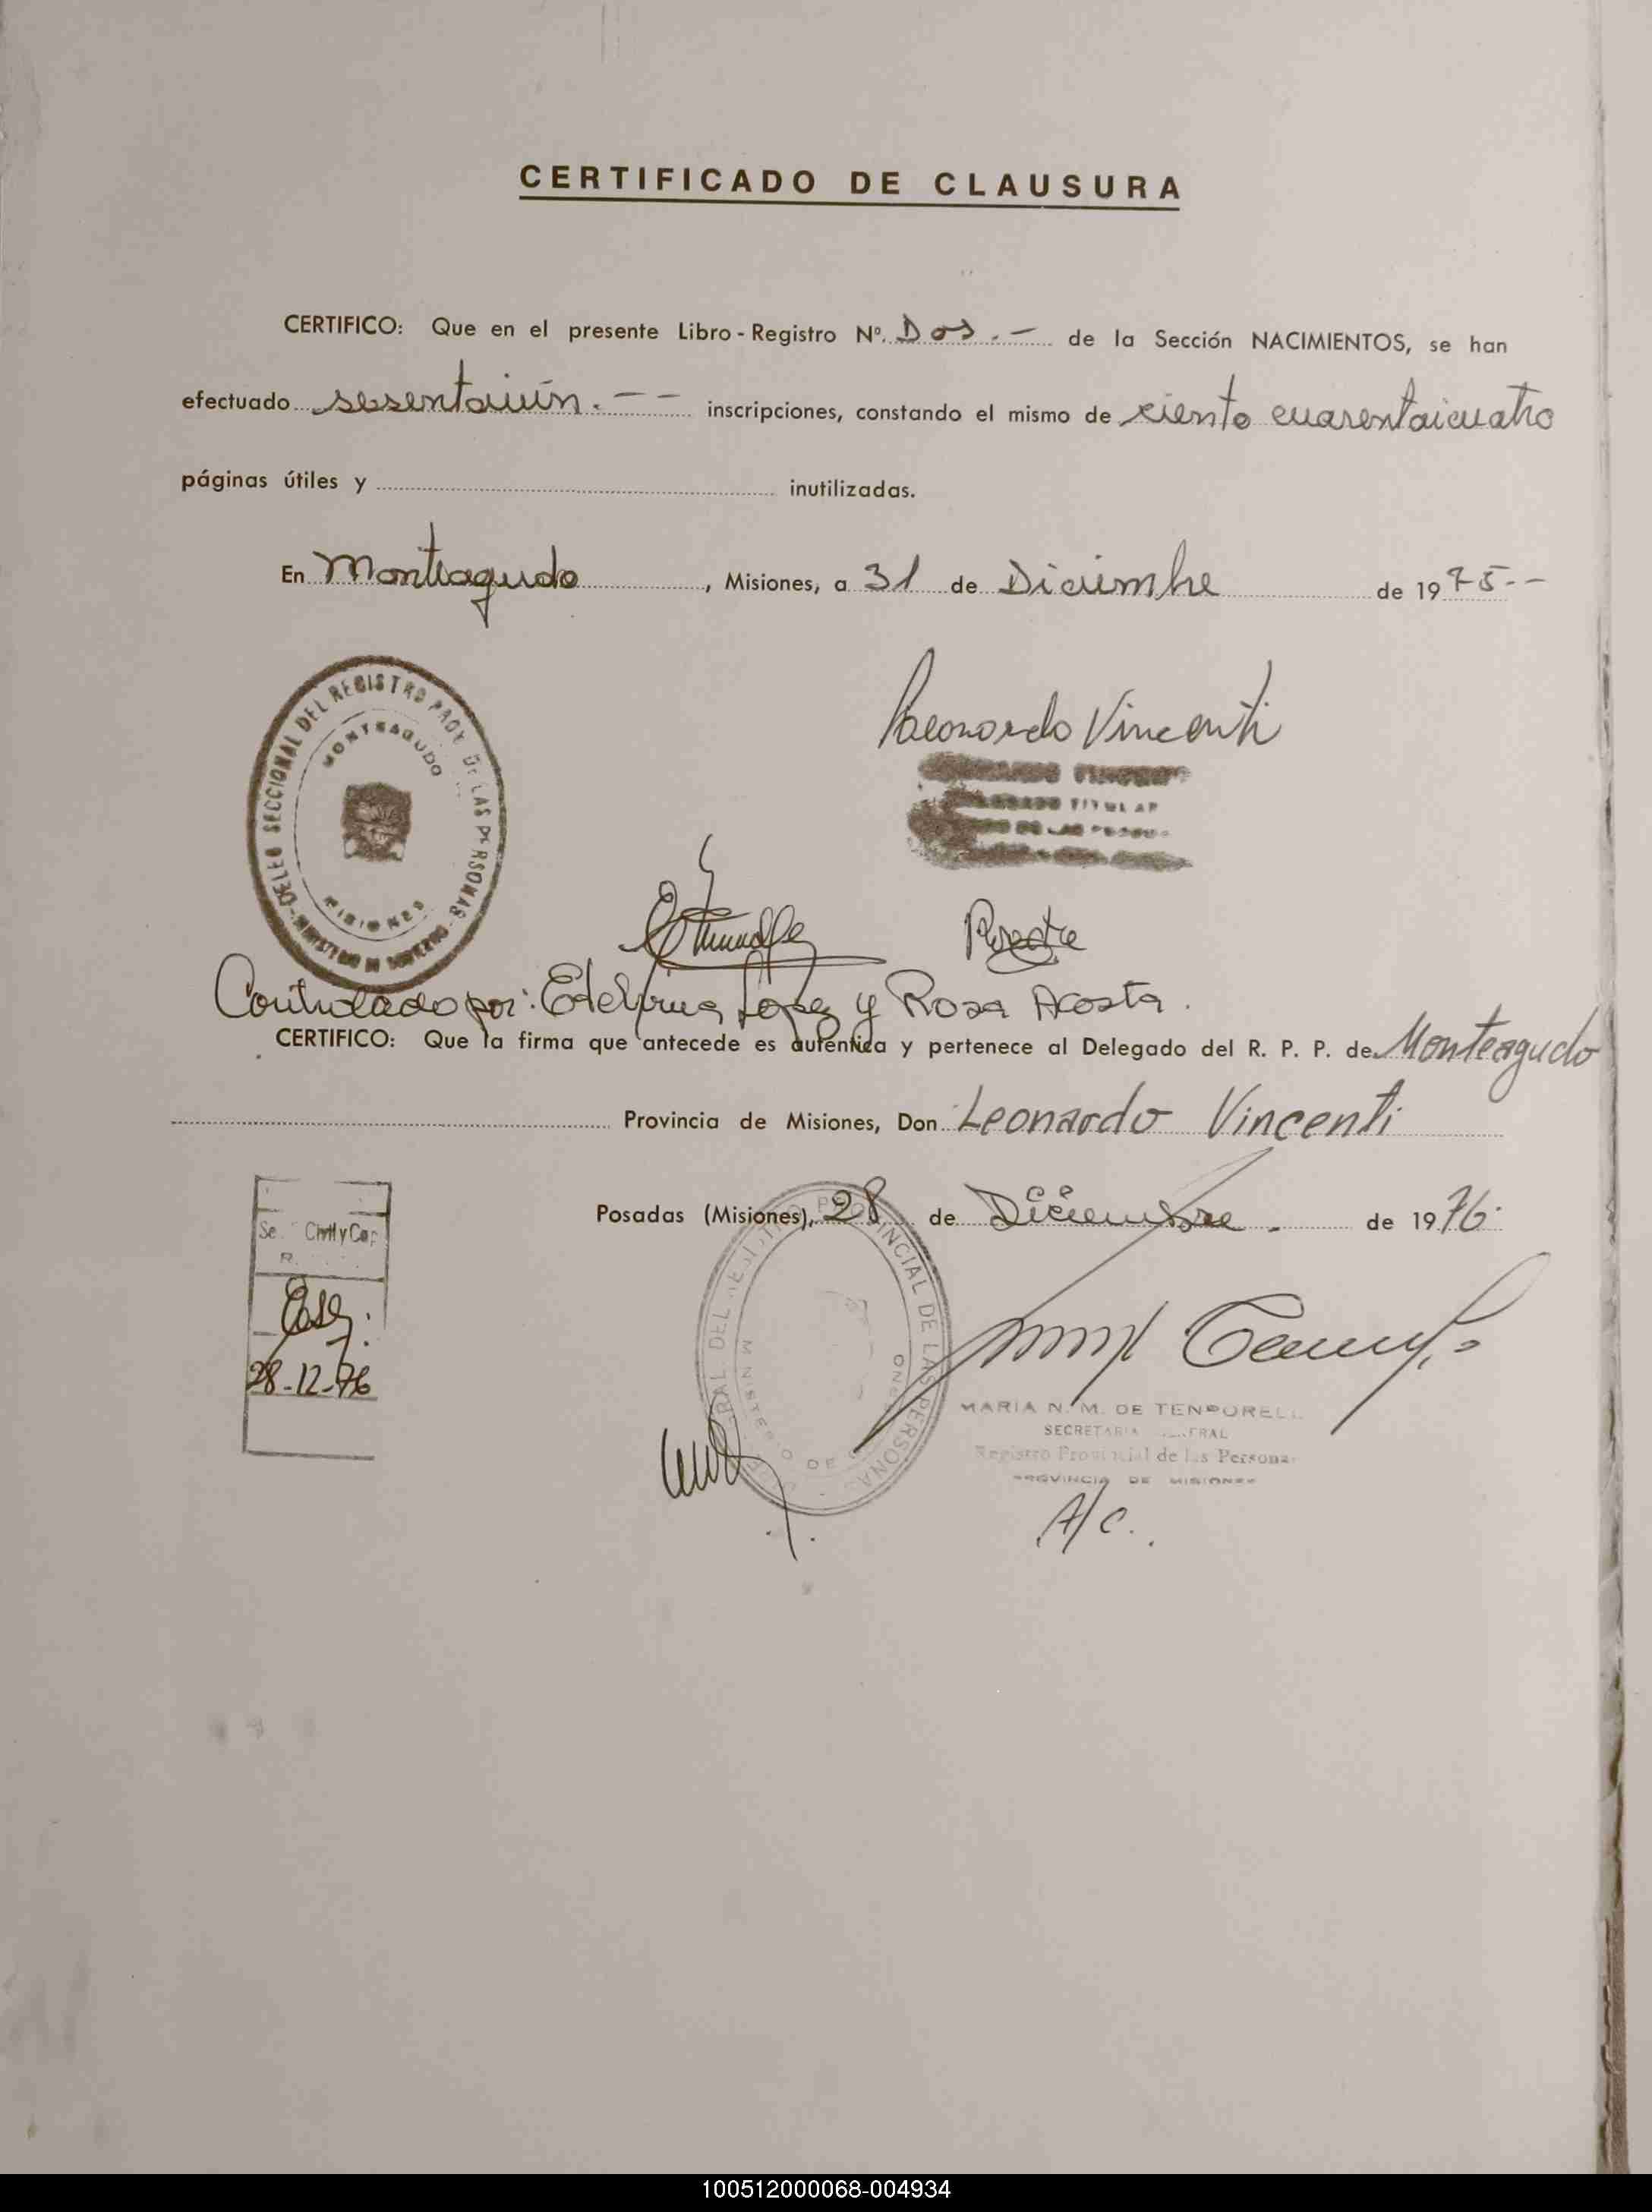 CERTIFICADO DE CLAUSURA
CERTIFICO: Que en el presente Libro - Registro Nº. Dos.- de la Sección NACIMIENTOS, se han
efectuado sesentaiún.-- inscripciones, constando el mismo de ciento cuarentaicuatro
páginas útiles y inutilizadas.
En Monteagudo, Misiones, a 31 de Diciembre de 1975--
DELEG SECCIONAL DEL REGISTRO PROV. DE LAS PERSONAS
MONTEAGUDO
MISIONES
MINISTERIO DE GOBIERNO
Leonardo Vincenti
TITULAR
Controlado por: Edelfina López y Rosa Acosta.
CERTIFICO: Que la firma que antecede es auténtica y pertenece al Delegado del R. P. P. de Monteagudo
Provincia de Misiones, Don Leonardo Vincenti
Posadas (Misiones), 28 de Diciembre. de 1976.
Civil y Cap
28-12-76
PROVINCIAL DE LAS PERSONAS
MARIA N. M. DE TEMPORELLI
SECRETARIA GENERAL
Registro Provincial de las Personas
PROVINCIA DE MISIONES
A/C.
100512000068-004934